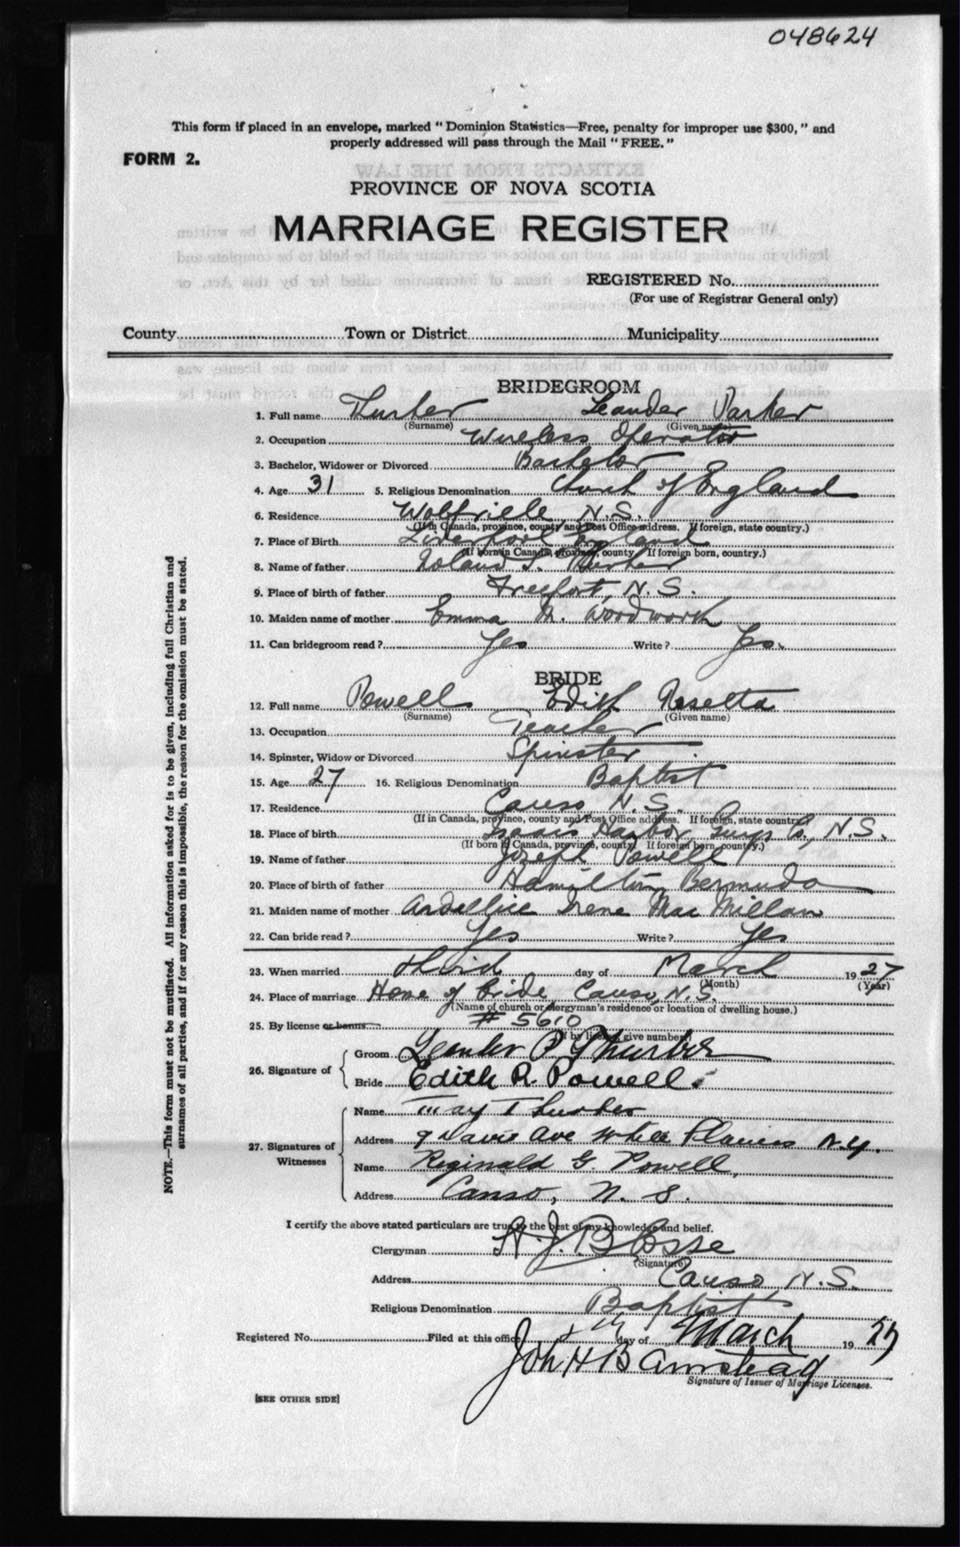 048624
This form if placed in an envelope, marked "Dominion Statistics—Free, penalty for improper use $300," and
properly addressed will pass through the Mail "FREE."
FORM 2.
PROVINCE OF NOVA SCOTIA
MARRIAGE REGISTER
REGISTERED No.
(For use of Registrar General only)
County Town or District Municipality
BRIDEGROOM
1. Full name Thurber Leander Parker
(Surname) (Given name)
2. Occupation Wireless Operator
3. Bachelor, Widower or Divorced Bachelor
4. Age 31 5. Religious Denomination Church of England
6. Residence Wolfville N.S.
(If in Canada, province, county and Post Office address. If foreign, state country.)
7. Place of Birth Liverpool England
(If born in Canada, province, county If foreign born, country.)
8. Name of father Thurber
9. Place of birth of father Freeport, N.S.
10. Maiden name of mother Emma M. Woodworth
11. Can bridegroom read? Yes Write? Yes.
BRIDE
12. Full name Powell Edith Rosetta
(Surname) (Given name)
13. Occupation Teacher
14. Spinster, Widow or Divorced Spinster
15. Age 27 16. Religious Denomination Baptist
17. Residence Canso N.S.
(If in Canada, province, county and Post Office address. If foreign, state country)
18. Place of birth Isaacs Harbor Guys Co, N.S.
(If born in Canada, province, county If foreign born, country.)
19. Name of father Joseph Powell
20. Place of birth of father Hamilton, Bermuda
21. Maiden name of mother Irene MacMillan
22. Can bride read? Yes Write? Yes
23. When married third day of March 1927
(Month) (Year)
24. Place of marriage Home of Bride Canso, N.S.
(Name of church or clergyman's residence or location of dwelling house.)
25. By license or banns # 5610
(If by license give number)
26. Signature of
Groom Leander P Thurber
Bride Edith R. Powell
27. Signatures of Witnesses
Name May Thurber
Address 9 Davis Ave White Plains N.Y.
Name Reginald G. Powell,
Address Canso, N. S.
I certify the above stated particulars are true to the best of my knowledge and belief.
Clergyman H.J. Blosse
(Signature)
Address Canso, N.S.
Religious Denomination Baptist
Registered No. Filed at this office day of March 1927
John H B Armstead
Signature of Issuer of Marriage Licenses.
[SEE OTHER SIDE]
NOTE.—This form must not be mutilated. All information asked for is to be given, including full Christian and
surnames of all parties, and if for any reason this is impossible, the reason for the omission must be stated.